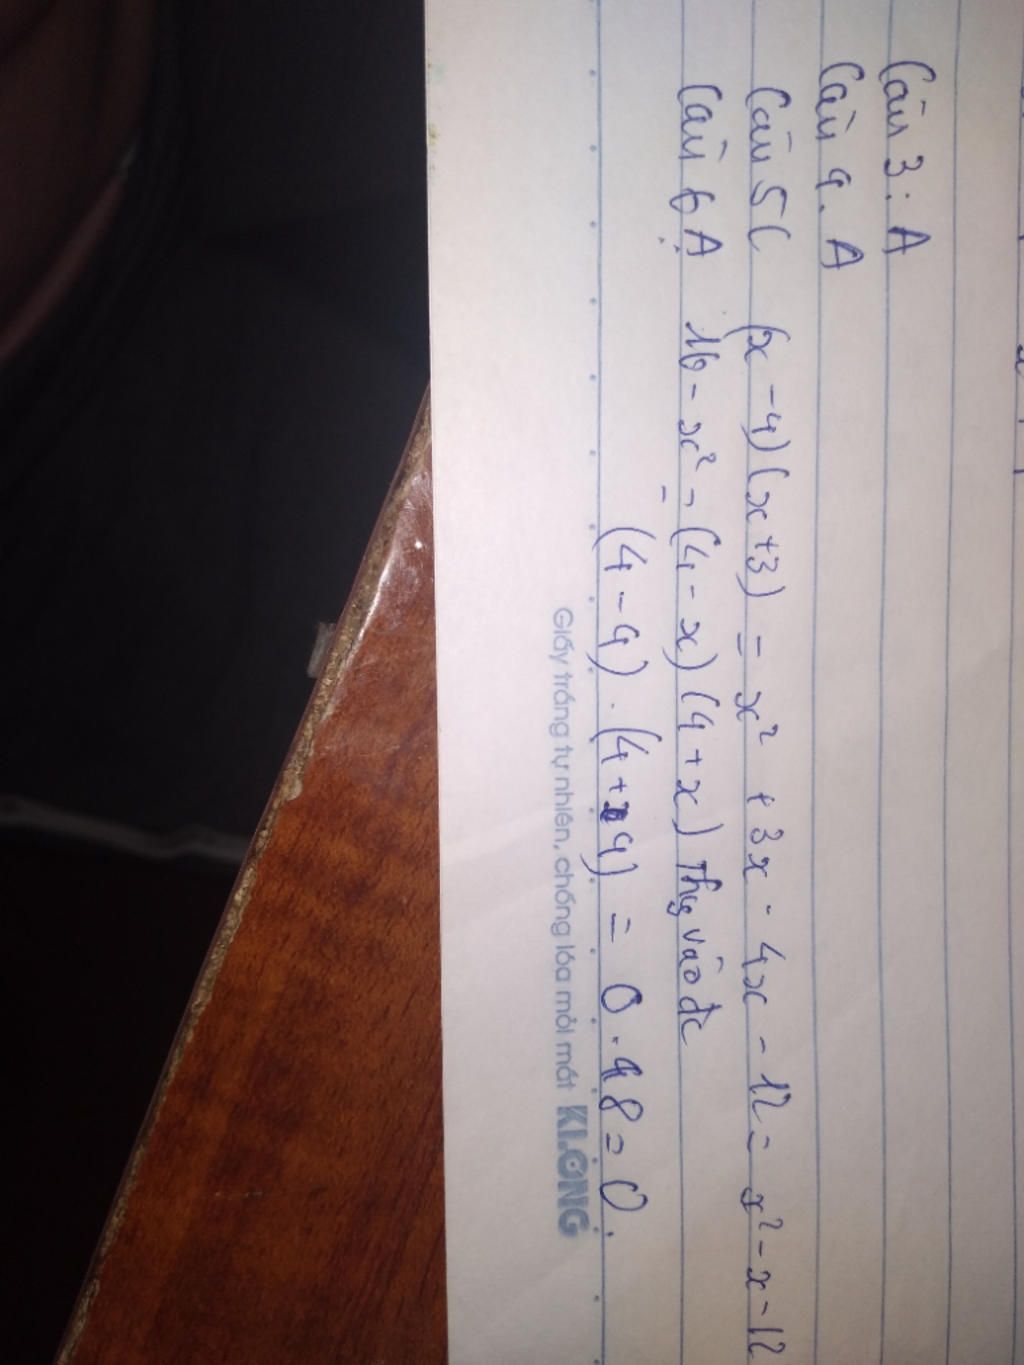 Câu 3: A
Câu 4. A
Câu 5 C (x - 4)(x + 3) = x² + 3x - 4x - 12 = x² - x - 12
Câu 6 A 16 - x² = (4 - x)(4 + x) Thay vào đc
(4 - 4) . (4 + 4) = 0 . 8 = 0.
Giấy trắng tự nhiên, chống lóa mỏi mắt KLONG